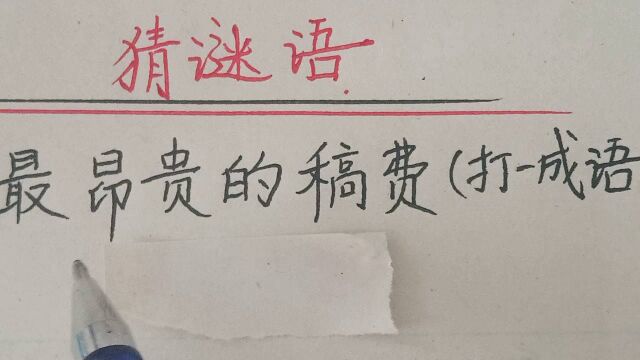 猜谜语
最昂贵的稿费(打一成语